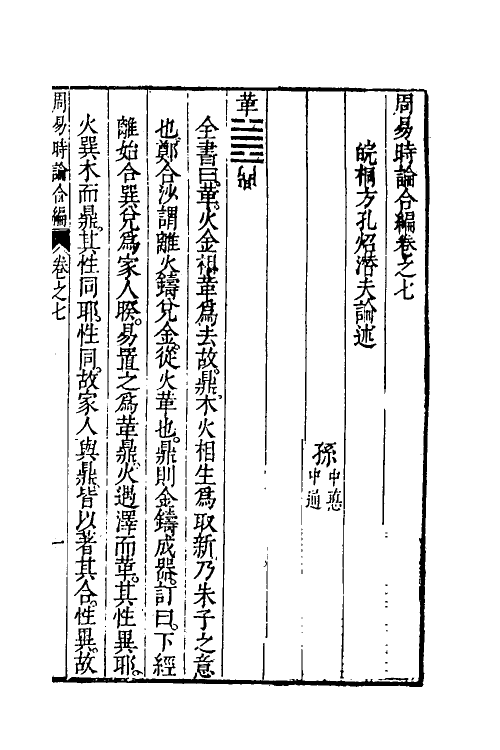 周易時論合編卷之七
皖桐方孔炤潛夫論述
孫
中德
中通
革
鼎
全書曰。革。火金相革為去故。鼎。木火相生為取新。乃朱子之意
也。鄭合沙謂離火鑄兌金。從火革也。鼎則金鑄成器。訂曰。下經
離始合巽兌為家人睽。易置之為革鼎。火遇澤而革。其性異耶。
火巽木而鼎。其性同耶。性同。故家人與鼎。皆以著其合。性異。故
周易時論合編
卷之七
一